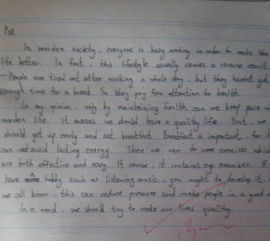 In morden society, everyone is busy working in order to make their
life better. In fact, this lifestyle usually comes a reverse result.
People are tired out after working a whole day, but they haven't got
enough time for a break. So they pay few attention to health.
In my opinion, only by maintaining health can we keep pace
morden life. It means we should have a quality life. First, we
should get up early and eat breakfast. Breakfast is important, for it
can lasting energy. Then we can do some exercises which
are both effective and easy. If course, it contains eye exercises. If
have some hobby, such as listening music, you ought to develop it.
we all know, this can reduce pressure and make people in a good
In a word, we should try to make our lives quality.